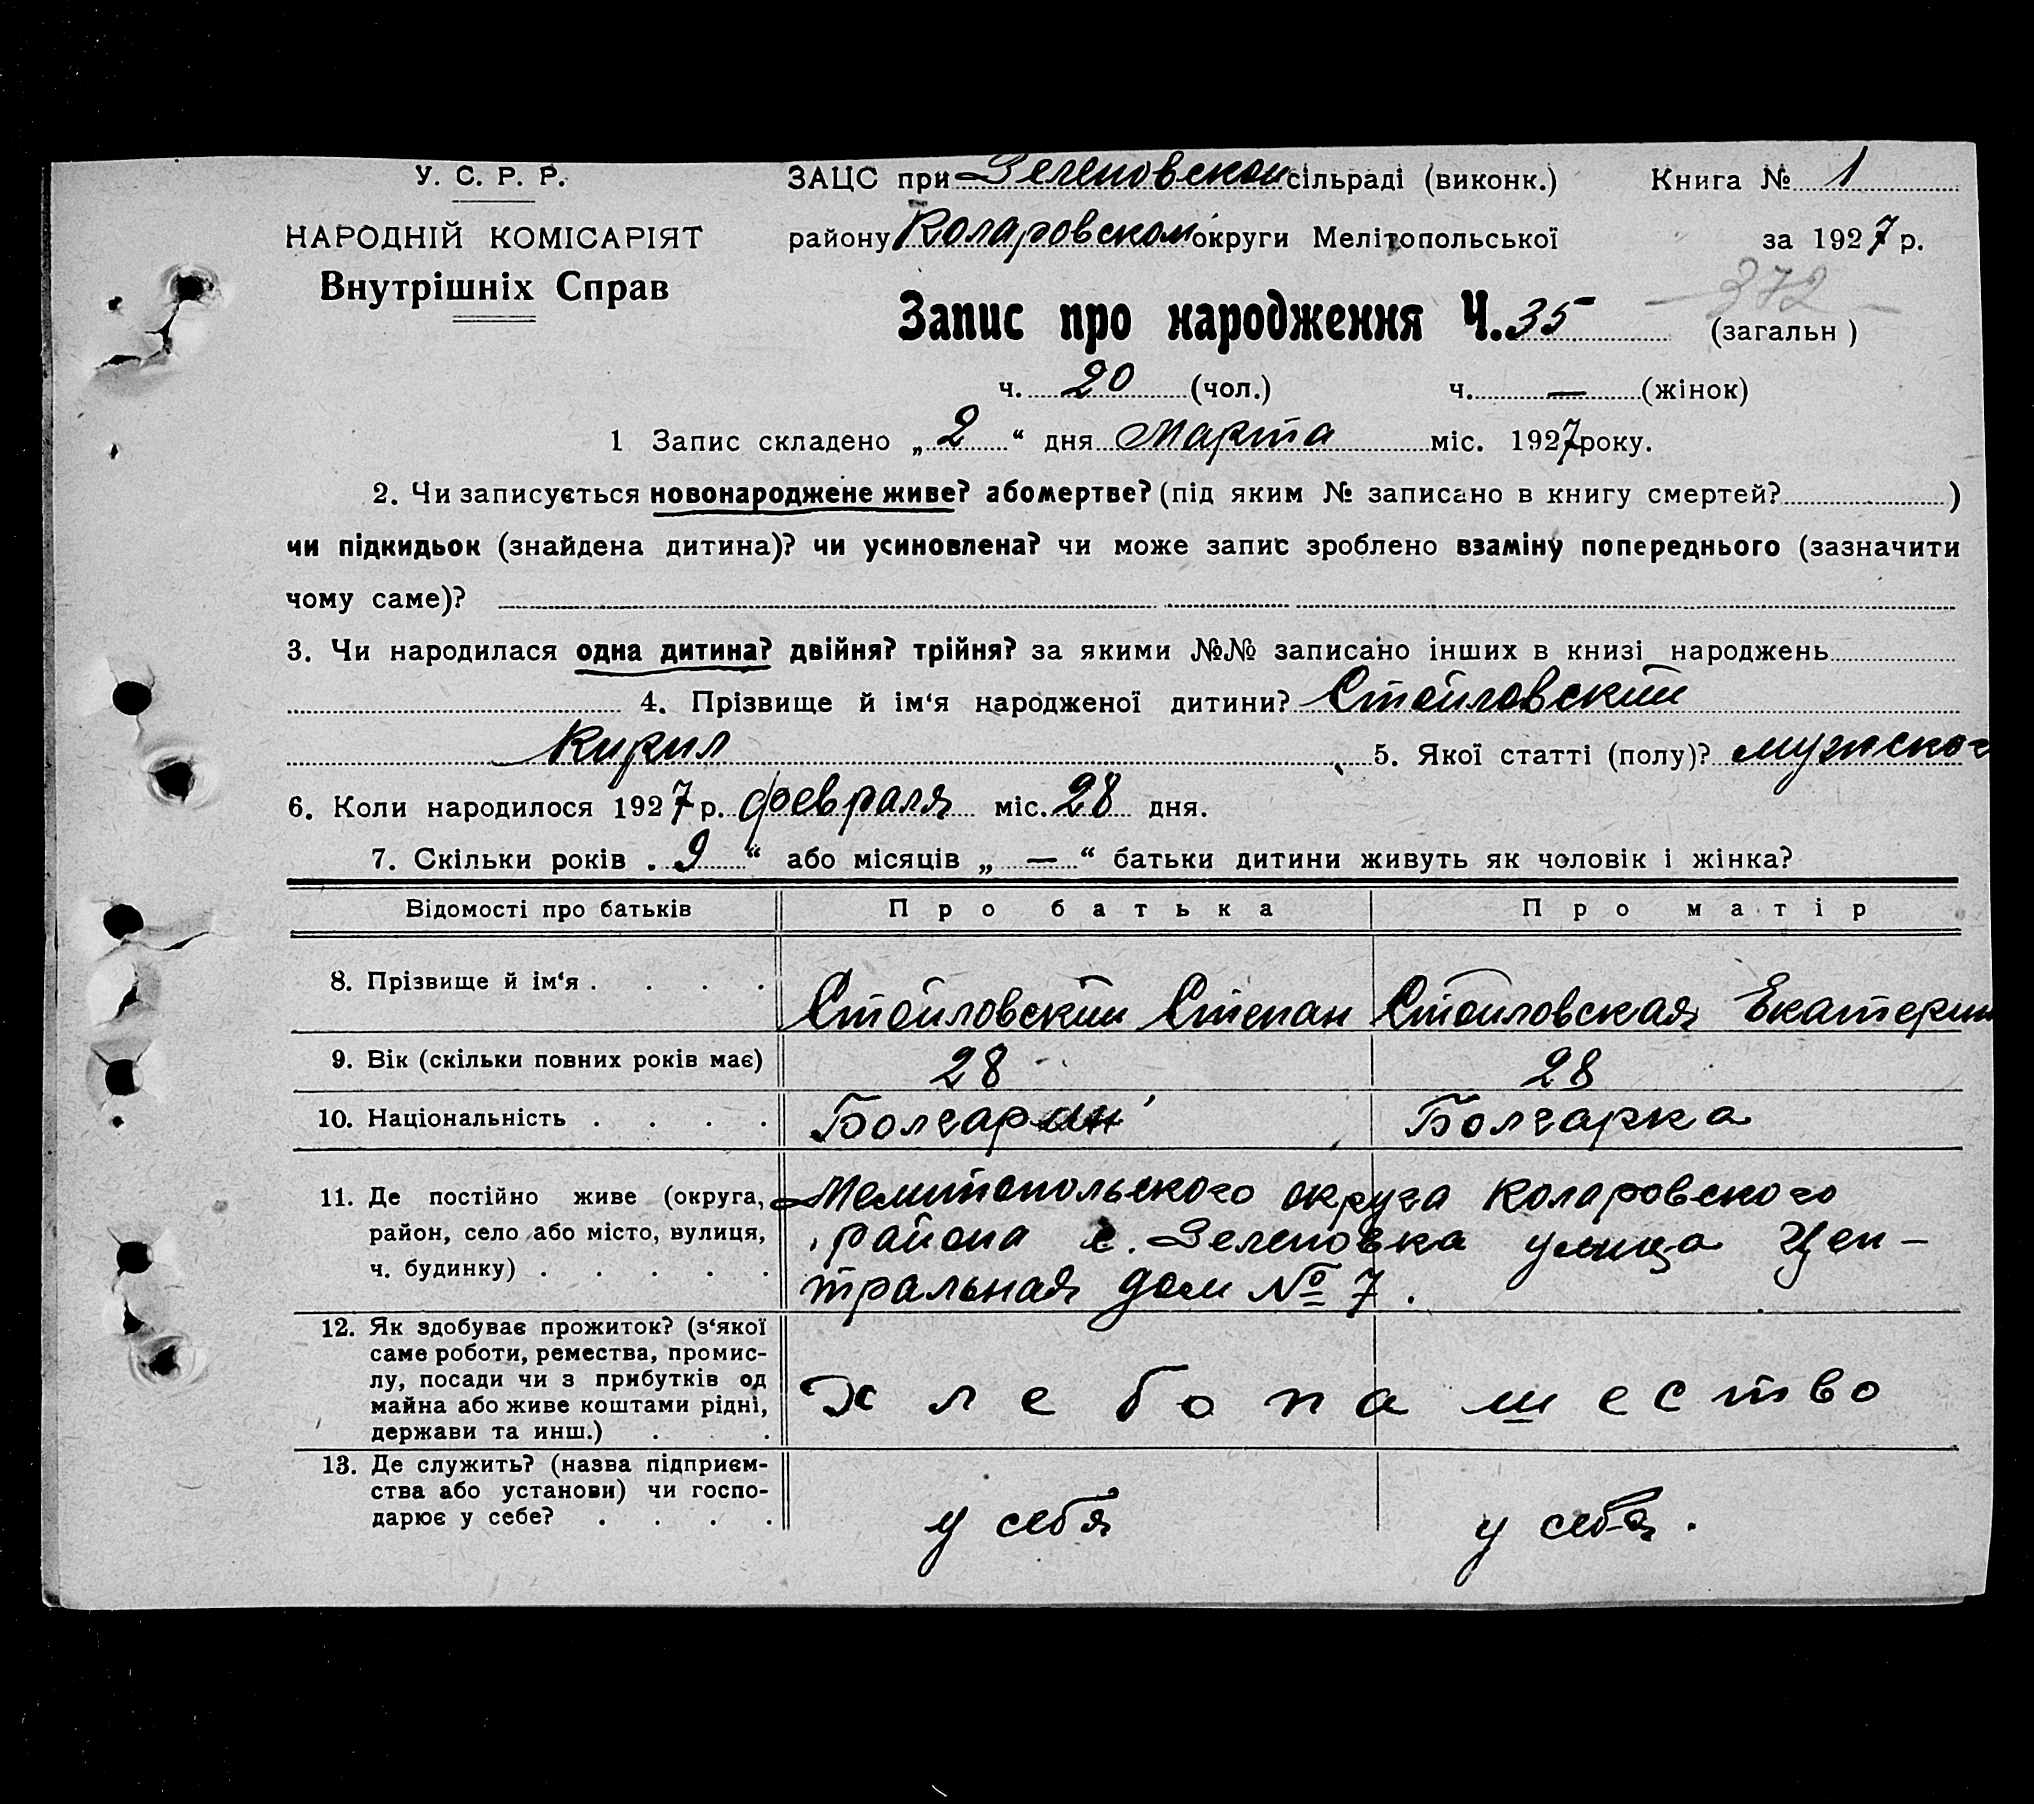 У. С. Р. Р.
НАРОДНІЙ КОМІСАРІЯТ
Внутрішніх Справ
ЗАЦС при Зеленовском сільраді (виконк.) Книга № 1
району Коларовском округи Мелітопольської за 1927 р.
372
Запис про народження Ч. 35 (загальн)
ч. 20 (чол.) ч. — (жінок)
1 Запис складено „ 2 “ дня Марта міс. 1927 року.
2. Чи записується новонароджене живе? або мертве? (під яким № записано в книгу смертей? )
чи підкидьок (знайдена дитина)? чи усиновлена? чи може запис зроблено взаміну попереднього (зазначити
чому саме)?
3. Чи народилася одна дитина? двійня? трійня? за якими №№ записано інших в книзі народжень
4. Прізвище й ім‘я народженої дитини? Стоиловский
Кирил 5. Якої статті (полу)? мужског
6. Коли народилося 1927 р. февраля міс. 28 дня.
7. Скільки років . 9 “ або місяців „ — “ батьки дитини живуть як чоловік і жінка?
Відомості про батьків Про батька Про матір
8. Прізвище й ім‘я . . . . Стоиловский Степан Стоиловская Екатерин
9. Вік (скільки повних років має) 28 28
10. Національність . . . . Болгарин Болгарка
11. Де постійно живе (округа, Мелитопольского округа Коларовского
район, село або місто, вулиця, района с. Зеленовка улица Цен-
ч. будинку) . . . . . тральная дом № 7.
12. Як здобуває прожиток? (з‘якої
саме роботи, ремества, промис-
лу, посади чи з прибутків од
майна або живе коштами рідні, хлебопашество
держави та инш.) . . .
13. Де служить? (назва підприєм-
ства або установи) чи госпо-
дарює у себе? . . . . у себя у себя.